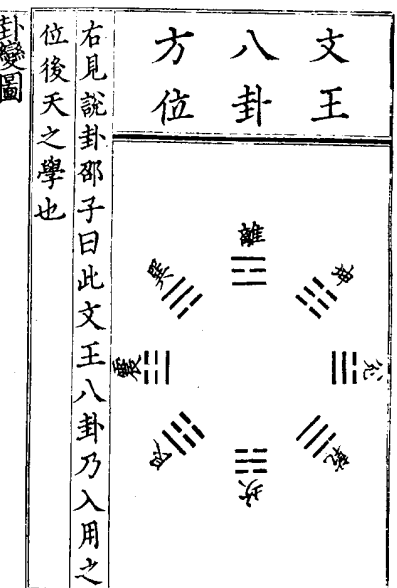 文王
八卦
方位
離
坤
兌
乾
坎
艮
震
巽
右見說卦邵子曰此文王八卦乃入用之
位後天之學也
卦變圖